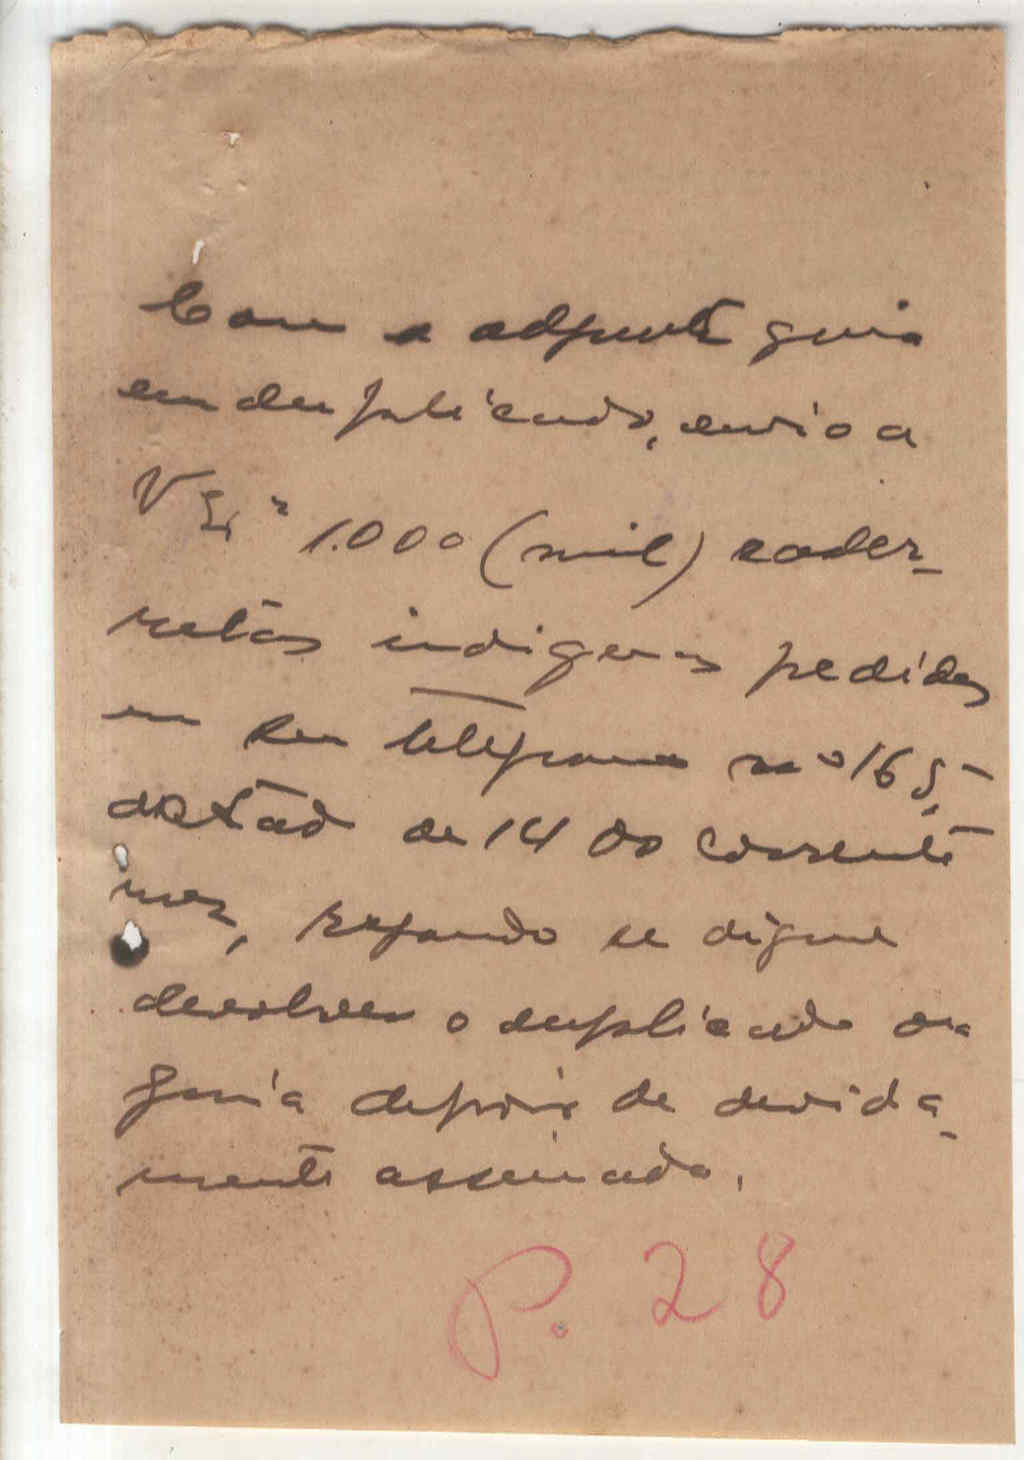 Com a adjunta guia
em duplicado, envio a
V Exª 1.000 (mil) cader-
netas indigenas pedidas
em seu telegrama nº 165,
datado de 14 do corrente
mez, rogando se digne
devolver o duplicado da
guia depois de devida-
mente assinado.
P. 28